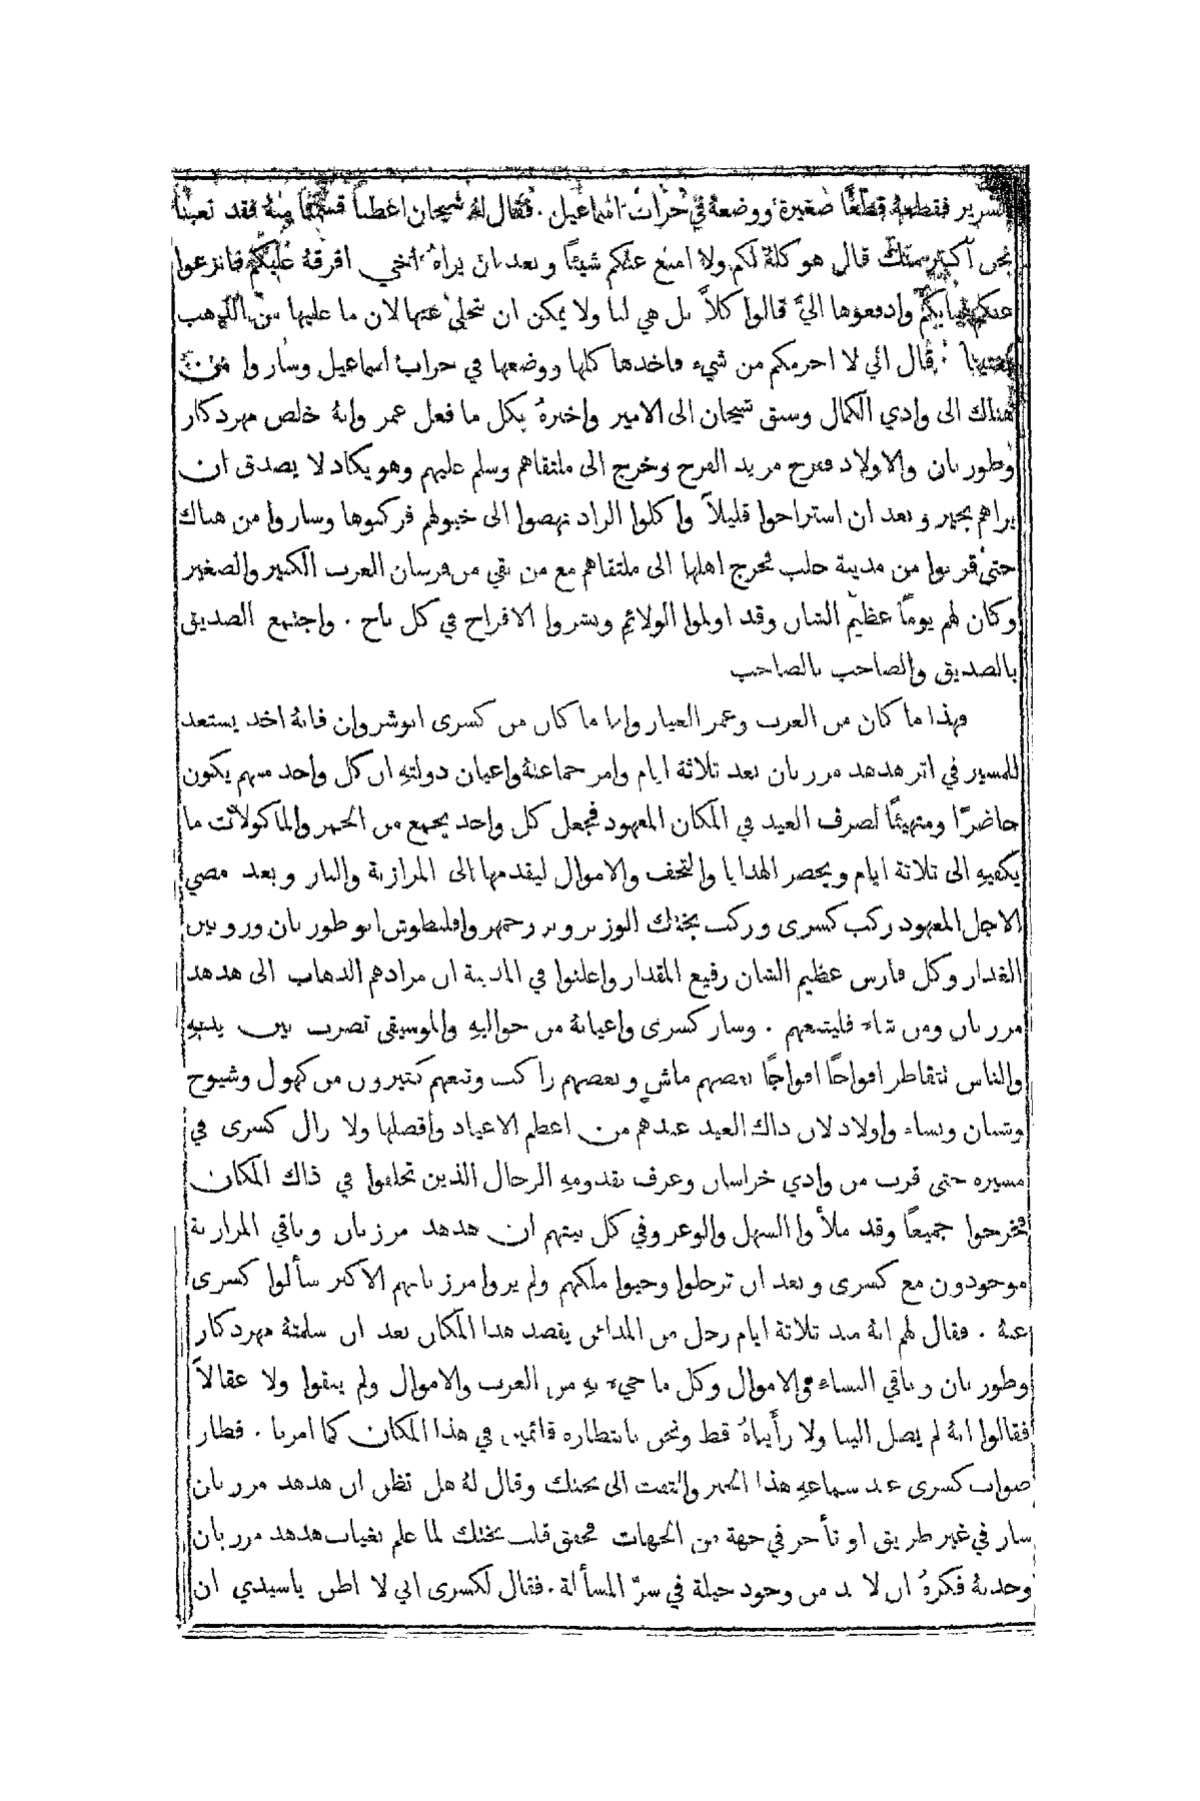 السرير فقطعهُ قطعًا صغيرة ووضعهُ في جراب اسماعيل . فقال لهُ شيحان اعطنا قسمنا منهُ فقد تعبنا
نحن اكثر منك قال هو كلهُ لكم ولا امنع عنكم شيئًا وبعد ان يراهُ اخي افرقهُ عليكم فانزعوا
عنكم ثيابكم وادفعوها اليَّ قالوا كلاَّ بل هي لنا ولا يمكن ان نتخلى عنها لان ما عليها من الذهب
قال اني لا احرمكم من شيء فاخذها كلها ووضعها في جراب اسماعيل وساروا من
هناك الى وادي الكمال وسبق شيحان الى الامير واخبرهُ بكل ما فعل عمر وانهُ خلص مهردكار
وطوربان والاولاد ففرح مزيد الفرح وخرج الى ملتقاهم وسلم عليهم وهو يكاد لا يصدق ان
يراهم بخير وبعد ان استراحوا قليلاً واكلوا الزاد نهضوا الى خيولهم فركبوها وساروا من هناك
حتى قربوا من مدينة حلب فخرج اهلها الى ملتقاهم مع من بقي من فرسان العرب الكبير والصغير
وكان لهم يومًا عظيم الشان وقد اولموا الولائم ونشروا الافراح في كل ناح . واجتمع الصديق
بالصديق والصاحب بالصاحب
فهذا ما كان من العرب وعمر العيار واما ما كان من كسرى انوشروان فانهُ اخذ يستعد
للمسير في اثر هدهد مرزبان بعد ثلاثة ايام وامر جماعتهُ واعيان دولتهِ ان كل واحد منهم يكون
حاضرًا ومتهيئًا لصرف العيد في المكان المعهود فجعل كل واحد يجمع من الخمر والماكولات ما
يكفيهِ الى ثلاثة ايام ويحضر الهدايا والتحف والاموال ليقدمها الى المرازبة والنار وبعد مضي
الاجل المعهود ركب كسرى وركب بختك الوزير وبزرجمهر وافليطوش ابو طوربان وروبين
الغدار وكل فارس عظيم الشان رفيع المقدار واعلنوا في المدينة ان مرادهم الذهاب الى هدهد
مرزبان ومن شاء فليتبعهم . وسار كسرى واعيانهُ من حواليهِ والموسيقى تضرب بين يديهِ
والناس تتقاطر افواجًا افواجًا بعضهم ماشٍ وبعضهم راكب وتبعهم كثيرون من كهول وشيوخ
وشبان ونساء واولاد لان ذاك العيد عندهم من اعظم الاعياد وافضلها ولا زال كسرى في
مسيره حتى قرب من وادي خراسان وعرف بقدومهِ الرجال الذين تخلفوا في ذاك المكان
فخرجوا جميعًا وقد ملأوا السهل والوعر وفي كل نيتهم ان هدهد مرزبان وباقي المرازبة
موجودون مع كسرى وبعد ان ترجلوا وحيوا ملكهم ولم يروا مرزبانهم الاكبر سألوا كسرى
عنهُ . فقال لهم انهُ منذ ثلاثة ايام رحل من المدائن يقصد هذا المكان بعد ان سلمتهُ مهردكار
وطوربان وباقي النساء والاموال وكل ما جيء بهِ من العرب والاموال ولم يبقوا ولا عقالاً
فقالوا انهُ لم يصل الينا ولا رأيناهُ قط ونحن بانتظاره قائمين في هذا المكان كما امرنا . فطار
صواب كسرى عند سماعهِ هذا الخبر والتفت الى بختك وقال لهُ هل تظن ان هدهد مرزبان
سار في غير طريق او تأخر في جهة من الجهات فخفق قلب بختك لما علم بغياب هدهد مرزبان
وحدثهُ فكرهُ ان لا بد من وجود حيلة في سرّ المسألة . فقال لكسرى اني لا اظن ياسيدي ان